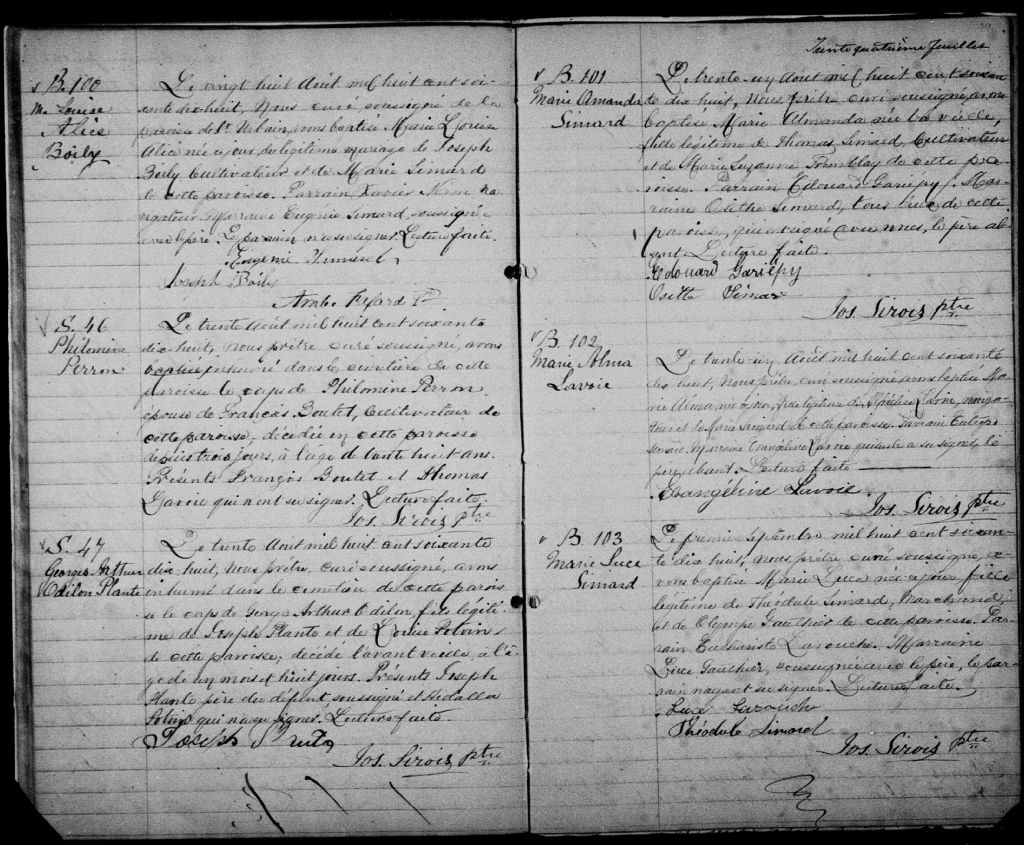 v B. 100
M. Louise
Alice
Boily
Le vingt huit Août mil huit cent soi-
xante dix huit, Nous curé soussigné de la
paroisse de St. Urbain, avons baptisé Marie Louise
Alice née ce jour, du légitime mariage de Joseph
Boily Cultivateur et de Marie Simard
de cette paroisse. Parrain Xavier Néron na-
vigateur, Marraine Eugénie Simard, soussignée
avec le père. Le parrain n'a su signer. Lecture faite.
Eugénie Simard
Joseph Boily
Amb. Fafard Ptre
v S. 46
Philomine
Perron
Le trente Août mil huit cent soixante
dix-huit, nous prêtre curé soussigné, avons
inhumé dans le cimetière de cette
paroisse le corps de Philomine Perron
épouse de François Boutet, Cultivateur de
cette paroisse, décédée en cette paroisse
depuis trois jours, à l'age de trente huit ans.
Présents François Boutet et Thomas
Gavoie qui n'ont su signer. Lecture faite.
Jos. Sirois ptre
v S. 47
Georges Arthur
Odilon Plante
Le trente Août mil huit cent soixante
dix-huit, Nous prêtre, curé soussigné, avons
inhumé dans le cimetière de cette parois-
se le corps de George Arthur Odilon, fils légiti-
me de Joseph Plante et de Louise Potvin
de cette paroisse, décédé l'avant veille, à l'â-
ge de un mois et huit jours. Présents Joseph
Plante père du défunt, soussigné et
Potvin qui n'a su signer. Lecture faite.
Joseph Plante
Jos. Sirois ptre
Trente quatrième feuillet
v B. 101
Marie Amanda
Simard
Le trente-un Août mil huit cent soixan-
te dix huit, Nous, prêtre curé soussigné, avons
baptisé Marie Almanda née la veille,
fille légitime de Thomas Simard, Cultivateur
et de Marie Suzanne Tremblay de cette pa-
roisse. Parrain Edouard Gariépy, Mar-
raine Osithe Simard, tous deux de cette
paroisse, qui ont signé avec nous, le père ab-
sent. Lecture faite.
Edouard Gariépy
Osette Simar
Jos. Sirois ptre
v B. 102
Marie Alma
Lavoie
Le trente-un Août mil huit cent soixante
dix huit, Nous prêtre, curé soussigné avons baptisé Ma-
rie Alma née ce jour, fille légitime de Lavoie, naviga-
teur et de Marie Simard de cette paroisse. Parrain
Marraine Evangéline Lavoie qui seule a su signer, le
père absent. Lecture faite
Evangéline Lavoie
Jos. Sirois ptre
v B. 103
Marie Luce
Simard
Le premier Septembre mil huit cent soixan-
te dix huit, nous prêtre curé soussigné, a-
vons baptisé Marie Luce née ce jour fille
légitime de Théodule Simard, Marchand,
et de Olympe Gauthier de cette paroisse. Par-
rain Eucharist Larouche. Marraine
Luce Gauthier, soussignée avec le père, le par-
rain n'ayant su signer. Lecture faite.
Luce Larouch
Théodule Simard
Jos. Sirois ptre